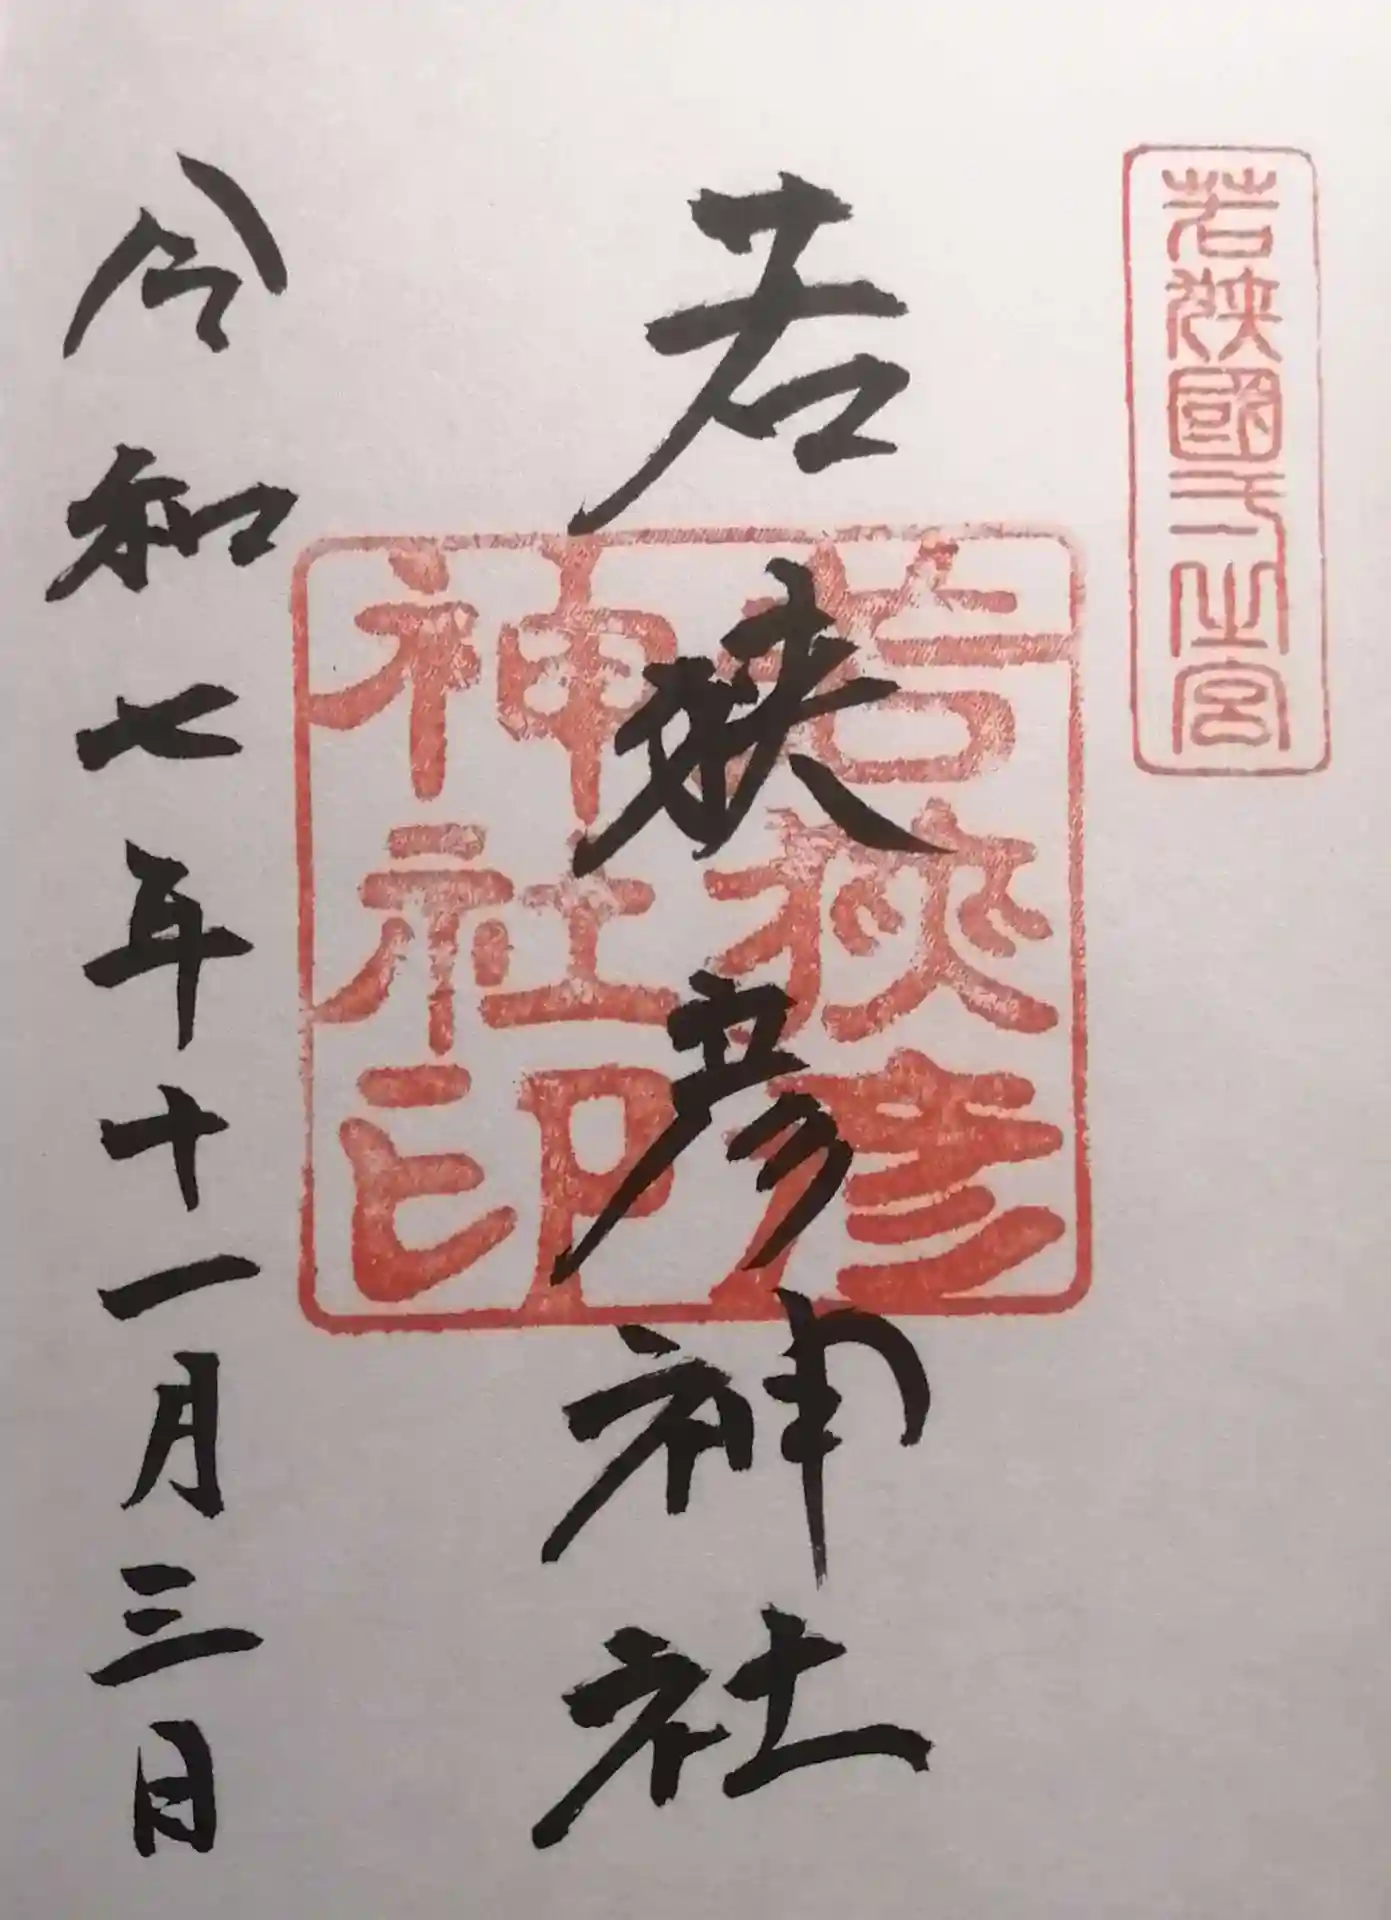 若狹國弌之宮
若狭彦神社
若狹彦
神社印
令和七年十一月三日